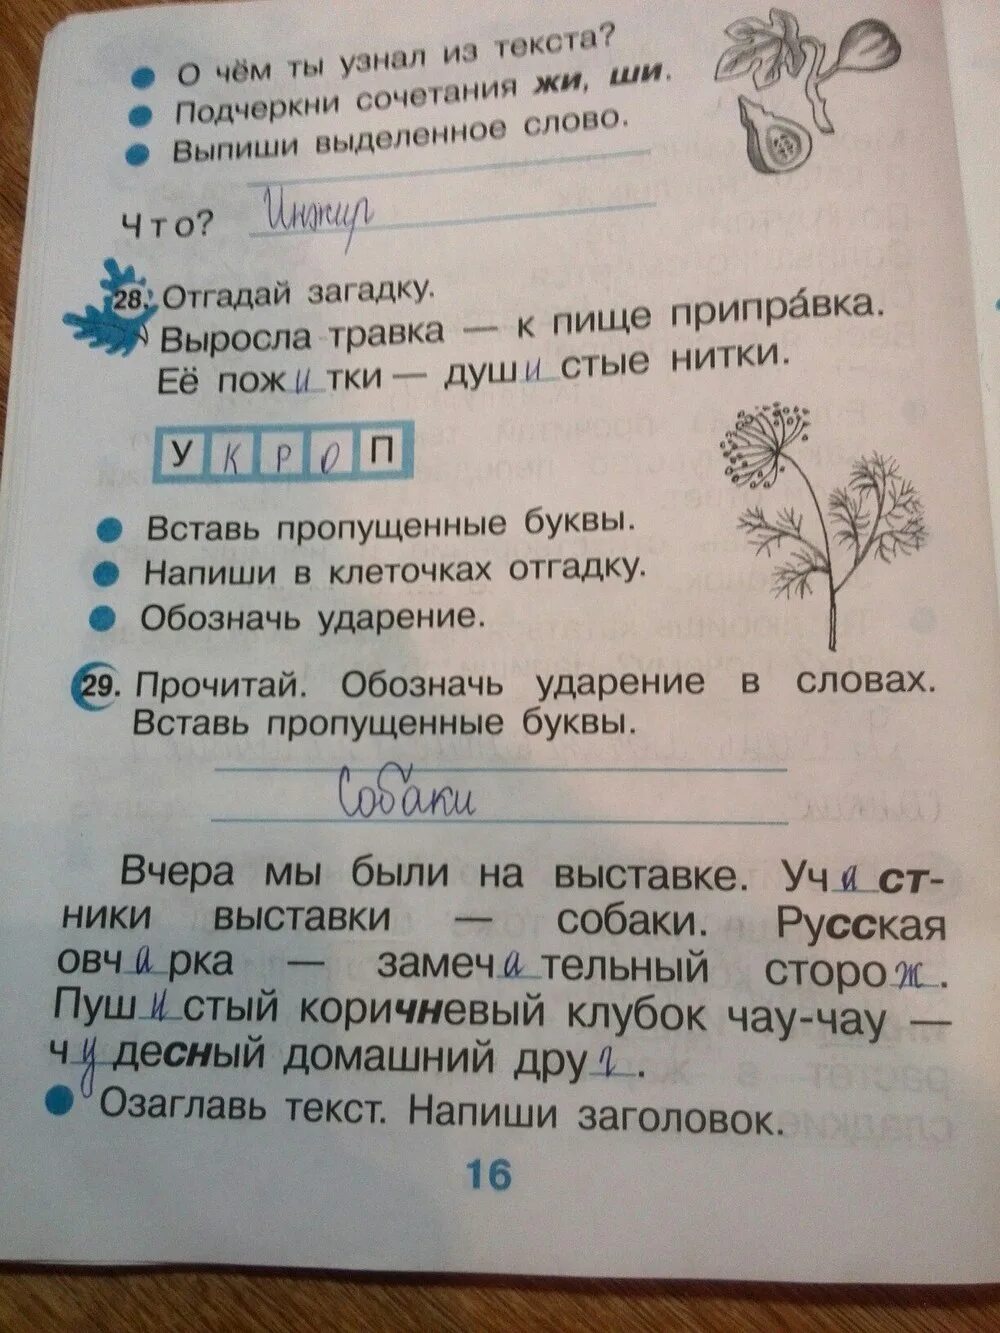 О чём ты узнал из текста?
Подчеркни сочетания жи, ши.
Выпиши выделенное слово.
Что? Инжир
28. Отгадай загадку.
Выросла травка — к пище припра́вка.
Её пожитки — душистые нитки.
УКРОП
Вставь пропущенные буквы.
Напиши в клеточках отгадку.
Обозначь ударение.
29. Прочитай. Обозначь ударение в словах.
Вставь пропущенные буквы.
Собаки
Вчера мы были на выставке. Участ-
ники выставки — собаки. Русская
овчарка — замечательный сторож.
Пушистый коричневый клубок чау-чау —
чудесный домашний друг.
Озаглавь текст. Напиши заголовок.
16